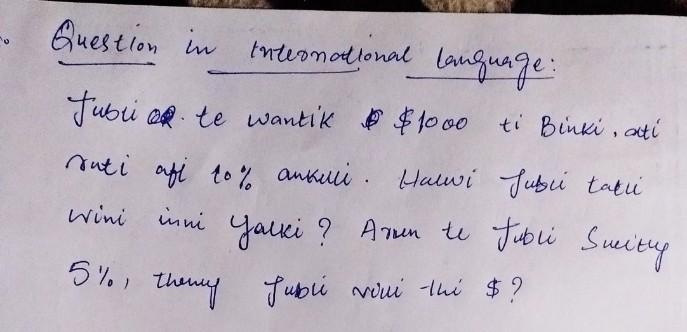 Question in International language:
Jubli te wantik $1000 ti Binki, ati
ruti afi 10% ankuli. Halwi Jubli tatii
wini inni Yalki? Arun te Jubli Switty
5%, themy Jubli vini thi $?